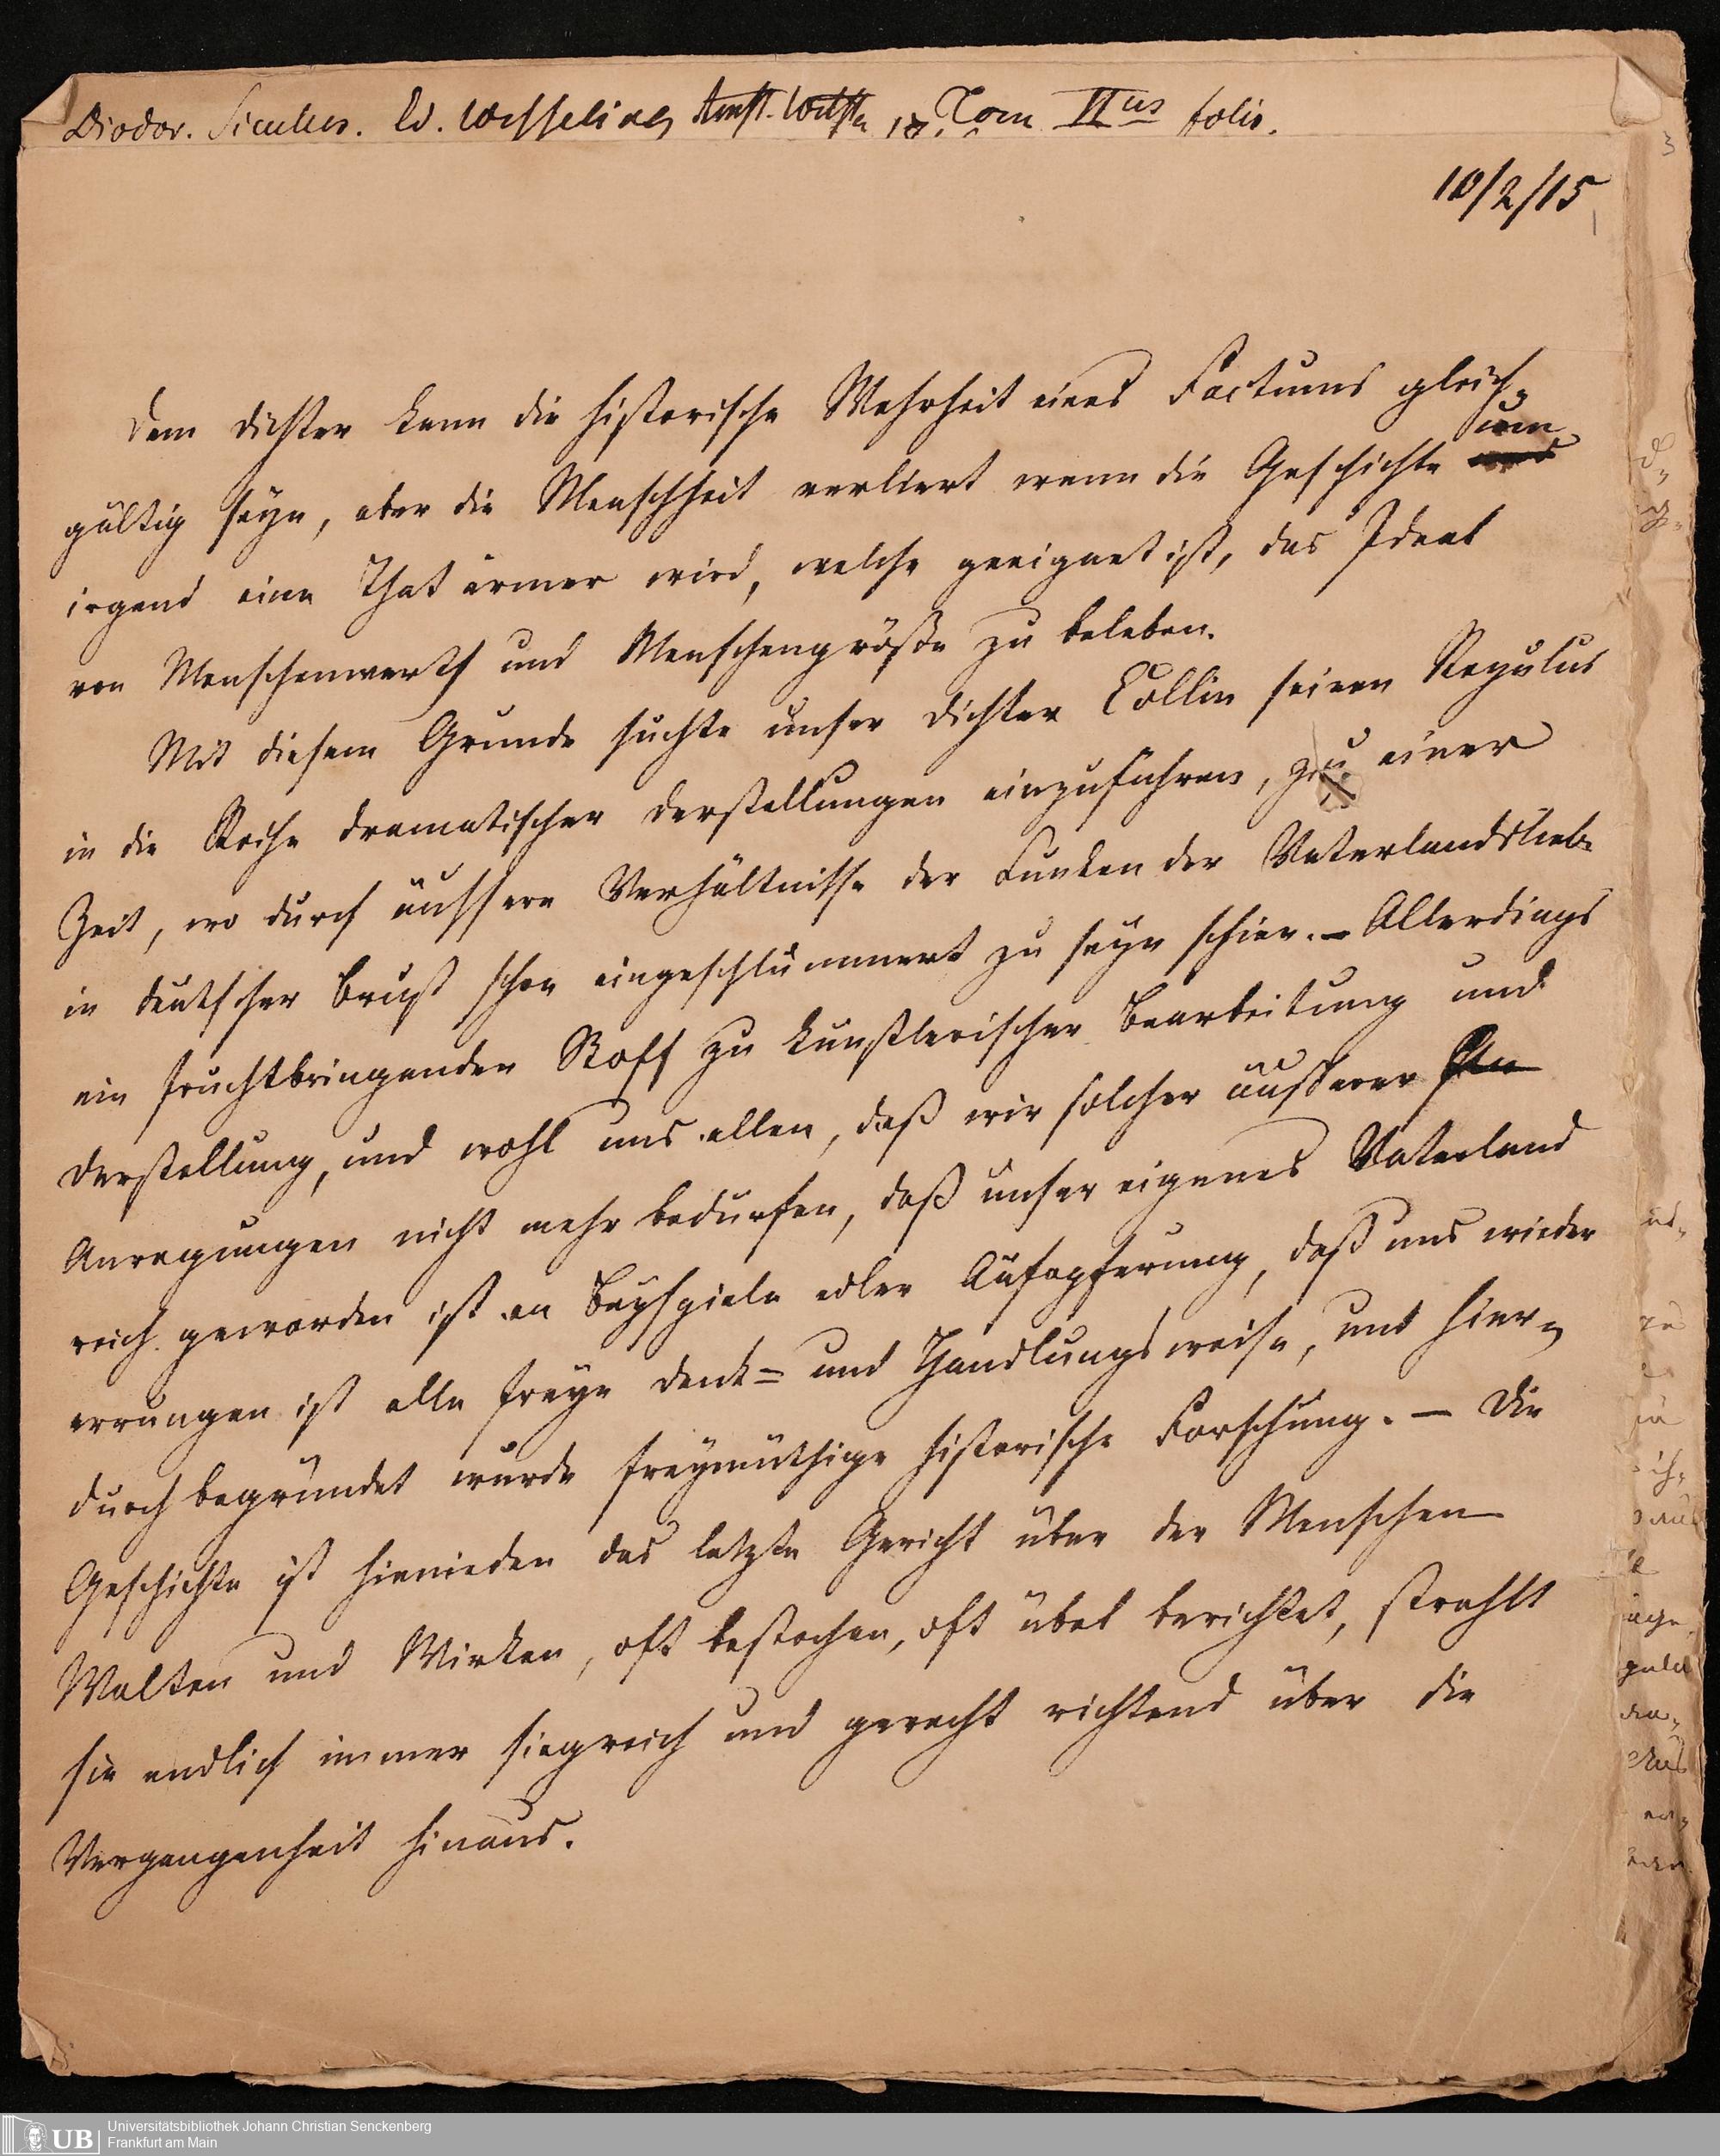 Diodor. Siculus. Ed. Wesseling Amst. Wettst. Tom IIus folio.
3
10/2/15
1
Dem Dichter kann die historische Wahrheit eines Factums gleich-
um
gültig seyn, aber die Menschheit verliert wenn die Geschichte
irgend eine That ärmer wird, welche geeignet ist, das Ideal
von Menschenwerth und Menschengröße zu beleben.
Mit diesem Grunde suchte unser Dichter Collin seinen Regulus
in die Reihe dramatischer Darstellungen einzuführen, zu einer
Zeit, wo durch äussere Verhältnisse der Funken der Vaterlandsliebe
in deutscher Brust schon eingeschlummert zu seyn schien. – Allerdings
ein fruchtbringender Stoff zu künstlerischer Bearbeitung und
Darstellung, und wohl uns allen, daß wir solcher äusserer
Anregungen nicht mehr bedürfen, daß unser eigenes Vaterland
reich geworden ist an Beyspiele edler Aufopferung, daß uns wieder
errungen ist alle freye Denk= und Handlungsweise, und hier-
durch begründet wurde freymüthige historische Forschung. – Die
Geschichte ist hienieden das letzte Gericht über der Menschen
Walten und Wirken, oft bestochen, oft übel berichtet, strahlt
sie endlich immer siegreich und gerecht richtend über die
Vergangenheit hinaus.
UB
Universitätsbibliothek Johann Christian Senckenberg
Frankfurt am Main